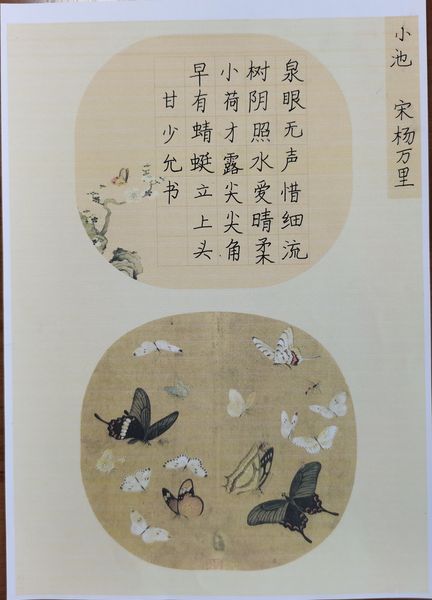 小池 宋杨万里
泉眼无声惜细流
树阴照水爱晴柔
小荷才露尖尖角
早有蜻蜓立上头
甘少允书